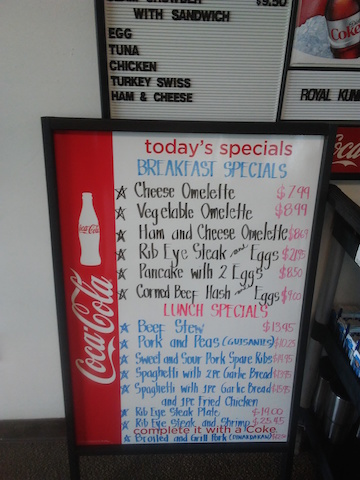 WITH SANDWICH
EGG
TUNA
CHICKEN
TURKEY SWISS
HAM & CHEESE
Coke
ROYAL
today's specials
BREAKFAST SPECIALS
Cheese Omelette $7.99
Vegetable Omelette $8.99
Ham and Cheese Omelette
Rib Eye Steak and Eggs
Pancake with 2 Eggs $8.50
Corned Beef Hash and Eggs
LUNCH SPECIALS
Beef Stew $13.95
Pork and Peas (GUISANTES)
Sweet and Sour Pork Spare Ribs
Spaghetti with 2PC Garlic Bread
Spaghetti with 1PC Garlic Bread
and 1PC Fried Chicken
Rib Eye Steak Plate $19.00
Rib Eye Steak and Shrimp
complete it with a Coke.
Broiled and Grill Pork
Coca-Cola
Coca-Cola